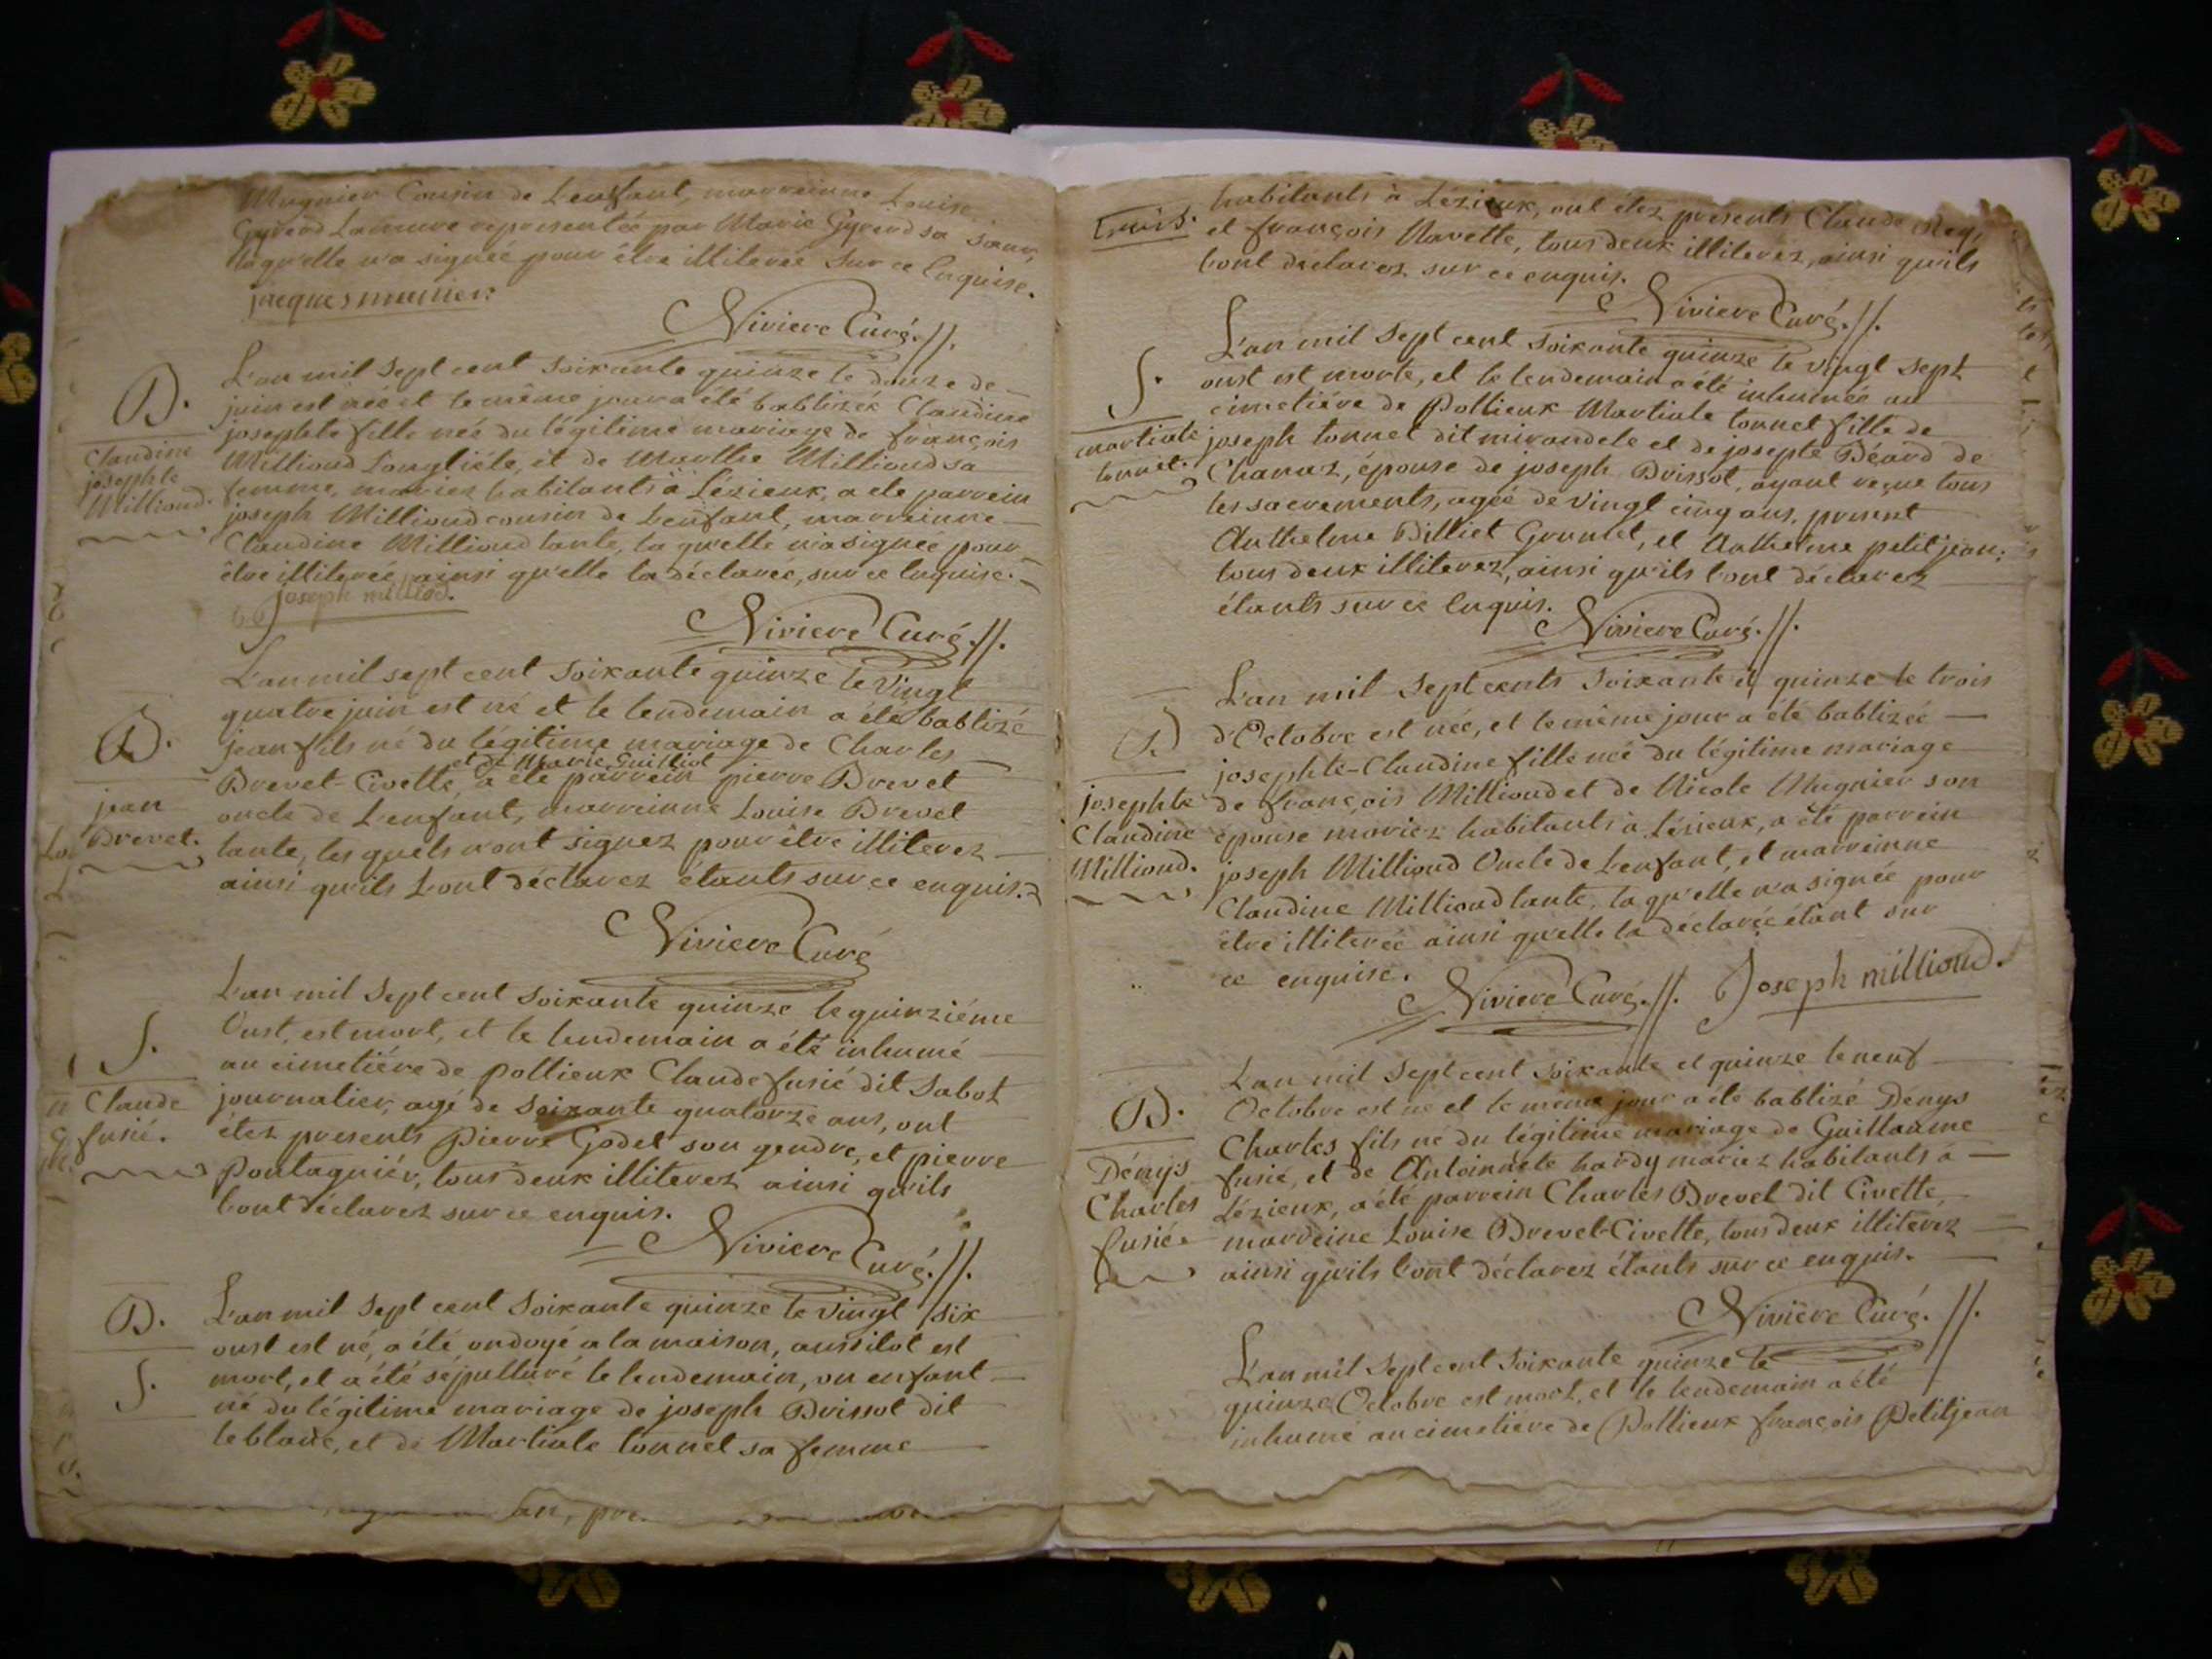 Mugnier Cousin de Lenfant, marreinne Louise
Gyrerd Lamure representée par Marie Gyrerd sa sœur,
laqu'elle n'a signée pour être illiterée sur ce Enquise.
jacques munier
Riviere Curé.//.
B.
Claudine
josephte
Milliond.
L'an mil sept cent soixante quinze le douze de
juin est née et le même jour a été babtizée Claudine
josephte fille née du légitime mariage de françois
Milliond Longliéle, et de Marthe Milliond sa
femme, mariez habitants à Lézieux, a ete parrein
joseph Milliond cousin de Lenfant, marreinne
Claudine Milliond tante, la qu'elle n'a signée pour
être illiterée, ainsi qu'elle la déclarée, sur ce Enquise.
joseph milliod.
Riviere Curé.//.
B.
jean
Brevet.
L'an mil sept cent soixante quinze le vingt
quatre juin est né et le lendemain a été babtizé
jean fils né du légitime mariage de Charles
et de Marie Guilliot
Brevet-Civette, a été parrein pierre Brevet
oncle de Lenfant, marreinne Louise Brevet
tante, les quels n'ont signez pour être illiterez
ainsi qu'ils L'ont déclarez étants sur ce enquis.
Riviere Curé
S.
Claude
fusié.
L'an mil sept cent soixante quinze le quinziéme
Oust, est mort, et le lendemain a été inhumé
au cimetiére de pollieux Claude fusié dit Sabot
journalier, agé de soixante quatorze ans, ont
étez presents Pierre Godet son gendre, et pierre
Pontagniér, tous deux illiterez ainsi qu'ils
l'ont déclarez sur ce enquis.
Riviere Curé.//.
B.
S.
L'an mil sept cent soixante quinze le vingt six
oust est né, a été ondoyé a la maison, aussitot est
mort, et a été sépulturé le lendemain, un enfant
né du légitime mariage de joseph Brissot dit
le blanc, et de Martiale tonnet sa femme
habitants à Lézieux, ont étez presents Claude
et françois Navette, tous deux illiterez, ainsi qu'ils
l'ont déclarez sur ce enquis.
Riviere Curé.//.
S.
martiale
tonnet.
L'an mil sept cent soixante quinze le vingt sept
oust est morte, et le lendemain a été inhumée au
cimetiére de Pollieux Martiale tonnet fille de
joseph tonnet dit mirandele et de josepte Béard de
Chanaz, épouse de joseph Brissot, ayant reçue tous
les sacrements, agée de vingt cinq ans, present
Anthelme Billiet Grumet, et Anthelme petit jean,
tous deux illiterez, ainsi qu'ils l'ont déclarez
étants sur ce Enquis.
Riviere Curé.//.
B.
josephte
Claudine
Milliond.
L'an mil sept cents soixante et quinze le trois
d'Octobre est née, et le même jour a été babtizée
josephte-Claudine fille née du légitime mariage
de françois Milliond et de Nicole Mugnier son
épouse mariez habitants à Lézieux, a été parrein
joseph Milliond Oncle de Lenfant, et marreinne
Claudine Milliond tante, la qu'elle n'a signée pour
être illiterée ainsi qu'elle la déclarée étant sur
ce enquise.
Riviere Curé.//. Joseph milliond.
B.
Dénys
Charles
fusié.
L'an mil sept cent soixante et quinze le neuf
Octobre est né et le même jour a été babtizé Dénys
Charles fils né du légitime mariage de Guillaume
fusié, et de Antoinnete hardy mariez habitants à
Lézieux, a été parrein Charles Brevet dit Civette,
marreine Louise Brevet-Civette, tous deux illiteréz
ainsi qu'ils l'ont déclarez étants sur ce enquis.
Riviére Curé.//.
L'an mil sept cent soixante quinze le
quinze Octobre est mort, et le lendemain a été
inhumé au cimetiere de Pollieux françois Petitjean